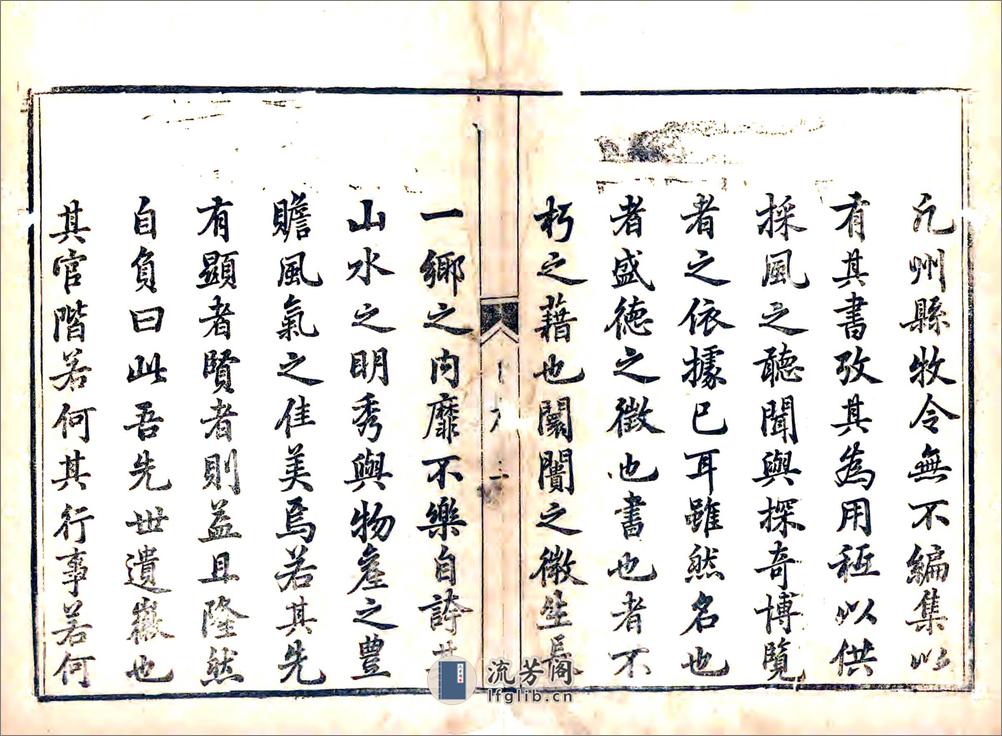 凢州縣牧令無不編集以
有其書攷其為用秖以供
採風之聽聞與探奇博覽
者之依據已耳雖然名也
者盛德之徵也書也者不
朽之藉也闤闠之微生長
一鄉之內靡不樂自誇其
山水之明秀與物產之豐
贍風氣之佳美焉若其先
有顯者賢者則益且隆然
自負曰此吾先世遺徽也
其官階若何其行事若何
流芳阁
lfglib.cn